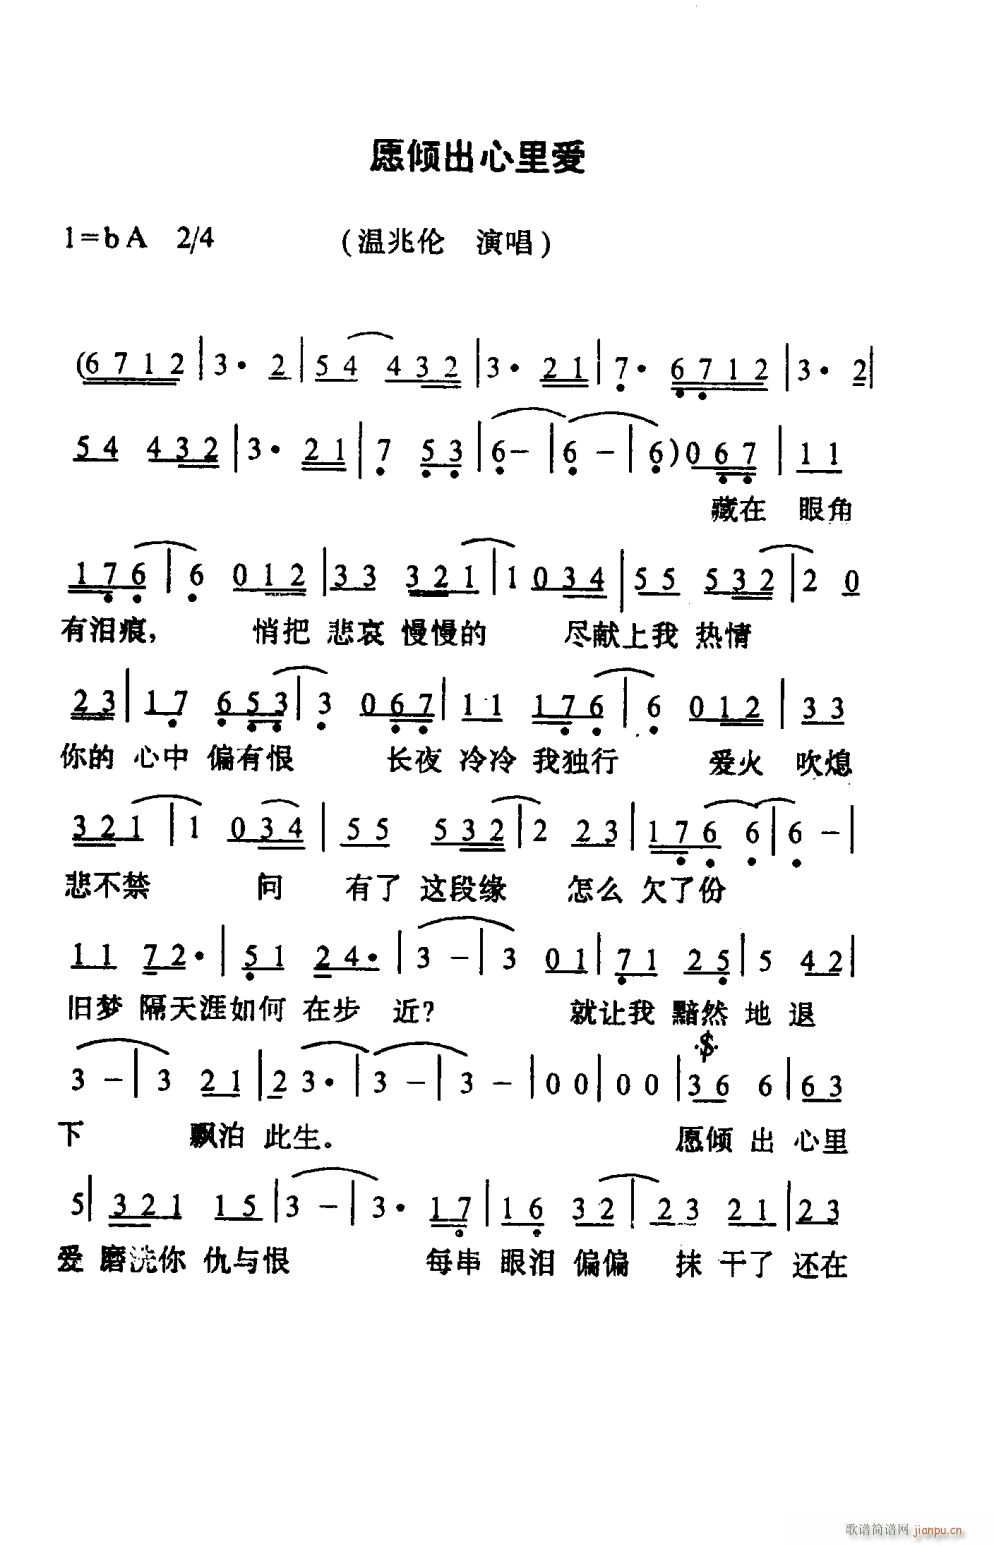 愿倾出心里爱
1=bA 2/4 (温兆伦 演唱)
(6 7 1 2 | 3· 2 | 5 4 4 3 2 | 3· 2 1 | 7· 6 7 1 2 | 3· 2 |
5 4 4 3 2 | 3· 2 1 | 7 5 3 | 6 – | 6 – | 6 ) 0 6 7 | 1 1
藏在 眼角
1 7 6 | 6 0 1 2 | 3 3 3 2 1 | 1 0 3 4 | 5 5 5 3 2 | 2 0
有泪痕, 悄把 悲哀 慢慢的 尽献上我 热情
2 3 | 1 7 6 5 3 | 3 0 6 7 | 1 1 1 7 6 | 6 0 1 2 | 3 3
你的 心中 偏有恨 长夜 冷冷 我独行 爱火 吹熄
3 2 1 | 1 0 3 4 | 5 5 5 3 2 | 2 2 3 | 1 7 6 6 | 6 – |
悲不禁 问 有了 这段缘 怎么 欠了份
1 1 7 2· | 5 1 2 4· | 3 – | 3 0 1 | 7 1 2 5 | 5 4 2 |
旧梦 隔天涯如何 在步 近? 就让我 黯然 地 退
3 – | 3 2 1 | 2 3· | 3 – | 3 – | 0 0 | 0 0 | 3 6 6 | 6 3
下 飘泊 此生. 愿倾 出 心里
5 | 3 2 1 1 5 | 3 – | 3· 1 7 | 1 6 3 2 | 2 3 2 1 | 2 3
爱 磨洗你 仇与恨 每串 眼泪 偏偏 抹 干了 还在
歌谱简谱网 jianpu.cn